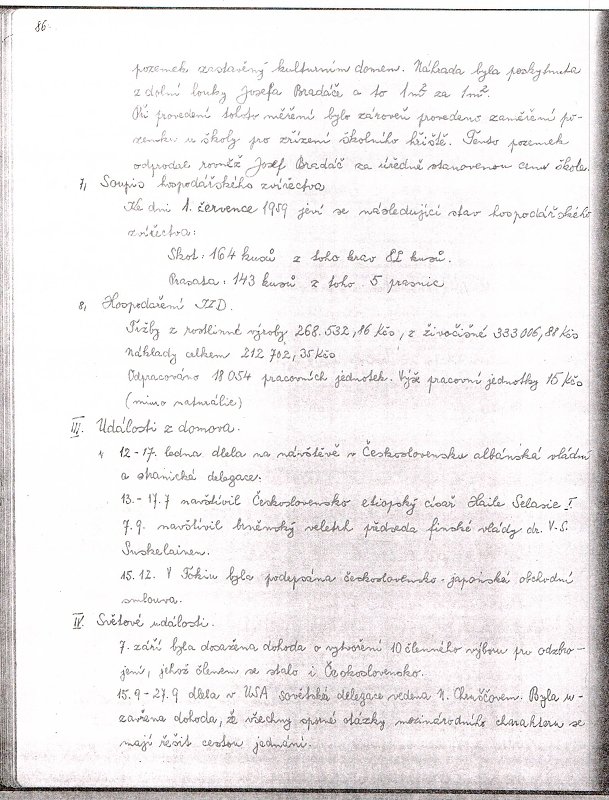 86
pozemek zastavěný kulturním domem. Náhrada byla poskytnuta
z dolní louky Josefa Bradáče a to 1m² za 1m².
Při provedení tohoto měření bylo zároveň provedeno zaměření po-
zemku u školy pro zřízení školního hřiště. Tento pozemek
odprodal rovněž Josef Bradáč za úředně stanovenou cenu škole.
7, Soupis hospodářského zvířectva
Ke dni 1. července 1959 jeví se následující stav hospodářského
zvířectva:
Skot: 164 kusů z toho krav 82 kusů.
Prasata: 143 kusů z toho 5 prasnic
8, Hospodaření JZD.
Tržby z rostlinné výroby 268.532,16 Kčs, z živočišné 333006,88 Kčs
Náklady celkem 212 702,35 Kčs
Odpracováno 18054 pracovních jednotek. Výše pracovní jednotky 15 Kčs
(mimo naturálie)
III. Události z domova.
12-17. ledna dlela na návštěvě v Československu albánská vládní
a stranická delegace.
13.-17.7 navštívil Československo etiopský císař Haile Selasie I
7.9. navštívil brněnský veletrh předseda finské vlády dr. V.S.
Suskelainen.
15.12. V Tokiu byla podepsána československo-japonská obchodní
smlouva.
IV. Světové události.
7. září byla dosažena dohoda o vytvoření 10 členného výboru pro odzbro-
jení, jehož členem se stalo i Československo.
15.9-27.9 dlela v USA sovětská delegace vedena N. Chruščovem. Byla u-
zavřena dohoda, že všechny sporné otázky mezinárodního charakteru se
mají řešit cestou jednání.